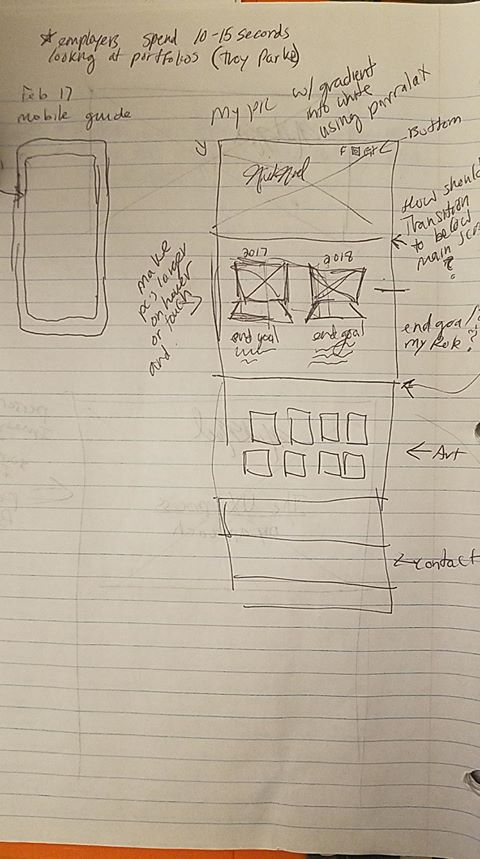 * employers spend 10-15 seconds
looking at portfolios (Troy Parke)
Feb 17
mobile guide
My pic w/ gradient
into white
using parralax
Bottom
How should
Transition
to below
main scre
?
make
pc's larger
on hover
or touch
and.
2017
2018
end goal
end goal
end goal/
my Role?
Art
contact